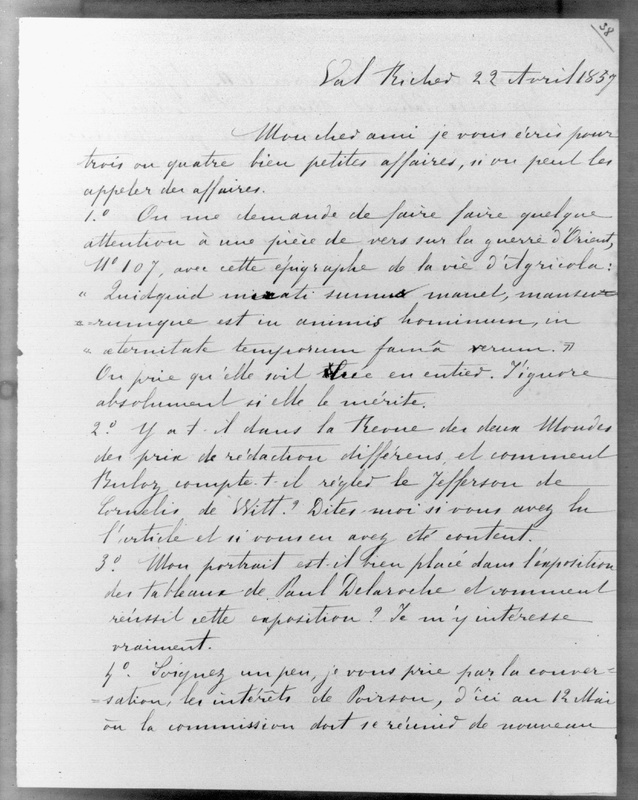 38
Val Richer 22 Avril 1857
Mon cher ami je vous écris pour
trois ou quatre bien petites affaires, si on peut les
appeler des affaires.
1.º On me demande de faire faire quelque
attention à une pièce de vers sur la guerre d'Orient,
Nº 107, avec cette épigraphe de la vie d'Agricola :
" Quidquid mirati sumus manet, mansu-
=rumque est in animis hominum, in
" æternitate temporum famâ rerum. "
On prie qu'elle soit lue en entier. J'ignore
absolument si elle le mérite.
2.º Y a-t-il dans la Revue des deux Mondes
des prix de rédaction différens, et comment
Buloz compte-t-il régler le Jefferson de
Cornelis de Witt ? Dites-moi si vous avez lu
l'article et si vous en avez été content.
3.º Mon portrait est-il bien placé dans l'exposition
des tableaux de Paul Delaroche et comment
réussit cette exposition ? Je m'y intéresse
vraiment.
4.º Soignez un peu, je vous prie par la conver-
=sation, les intérêts de Poirson, d'ici au 12 Mai
où la commission doit se réunir de nouveau